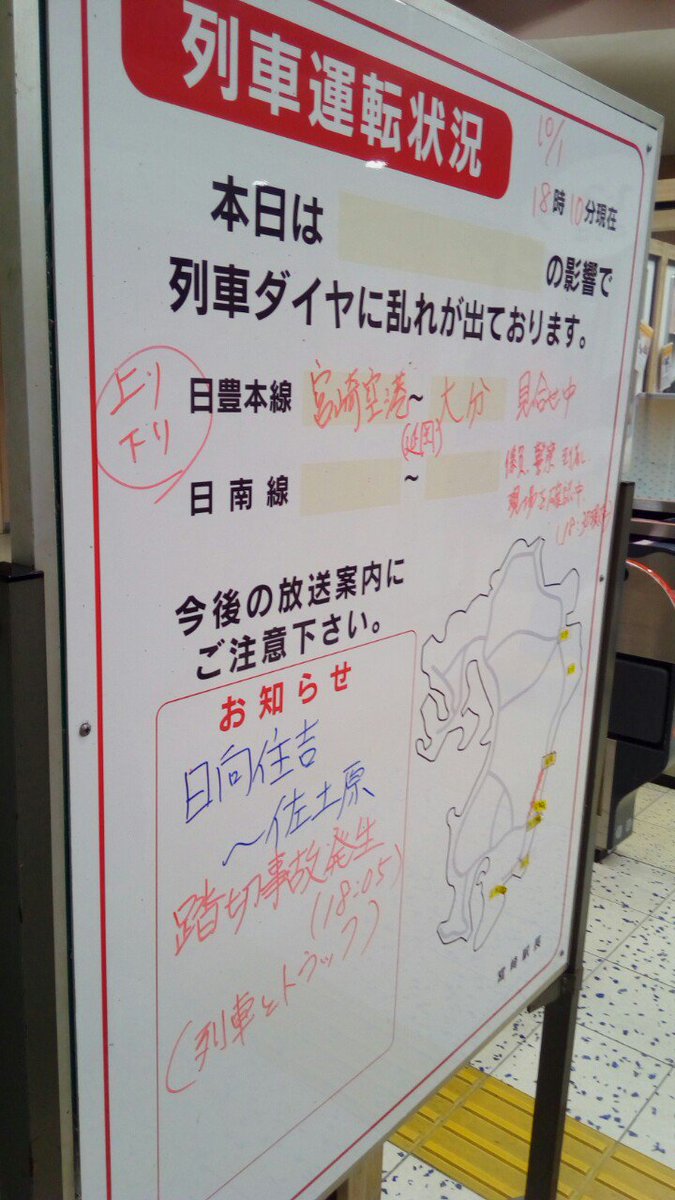 列車運転状況
10/1
18時10分現在
本日は
の影響で
列車ダイヤに乱れが出ております。
上り
下り
日豊本線 宮崎空港～大分 見合せ中
(延岡)
日南線 ～
係員、警察
現場を確認中
今後の放送案内に
ご注意下さい。
お知らせ
日向住吉
～佐土原
踏切事故発生
(18:05)
(列車とトラック)
宮崎駅長